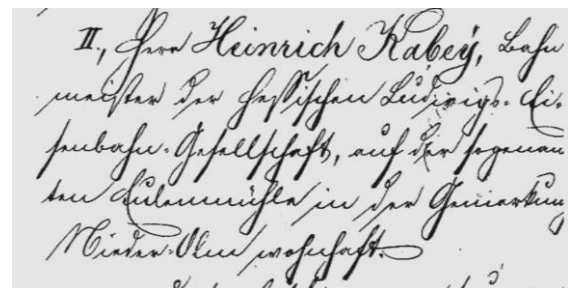 II., Herrn Heinrich Kabeÿ, Bahn
meister der Hessischen Ludwigs-Ei-
senbahn-Gesellschaft, auf der sogenan
ten Eulenmühle in der Gemarkung
Nieder-Olm wohnhaft.